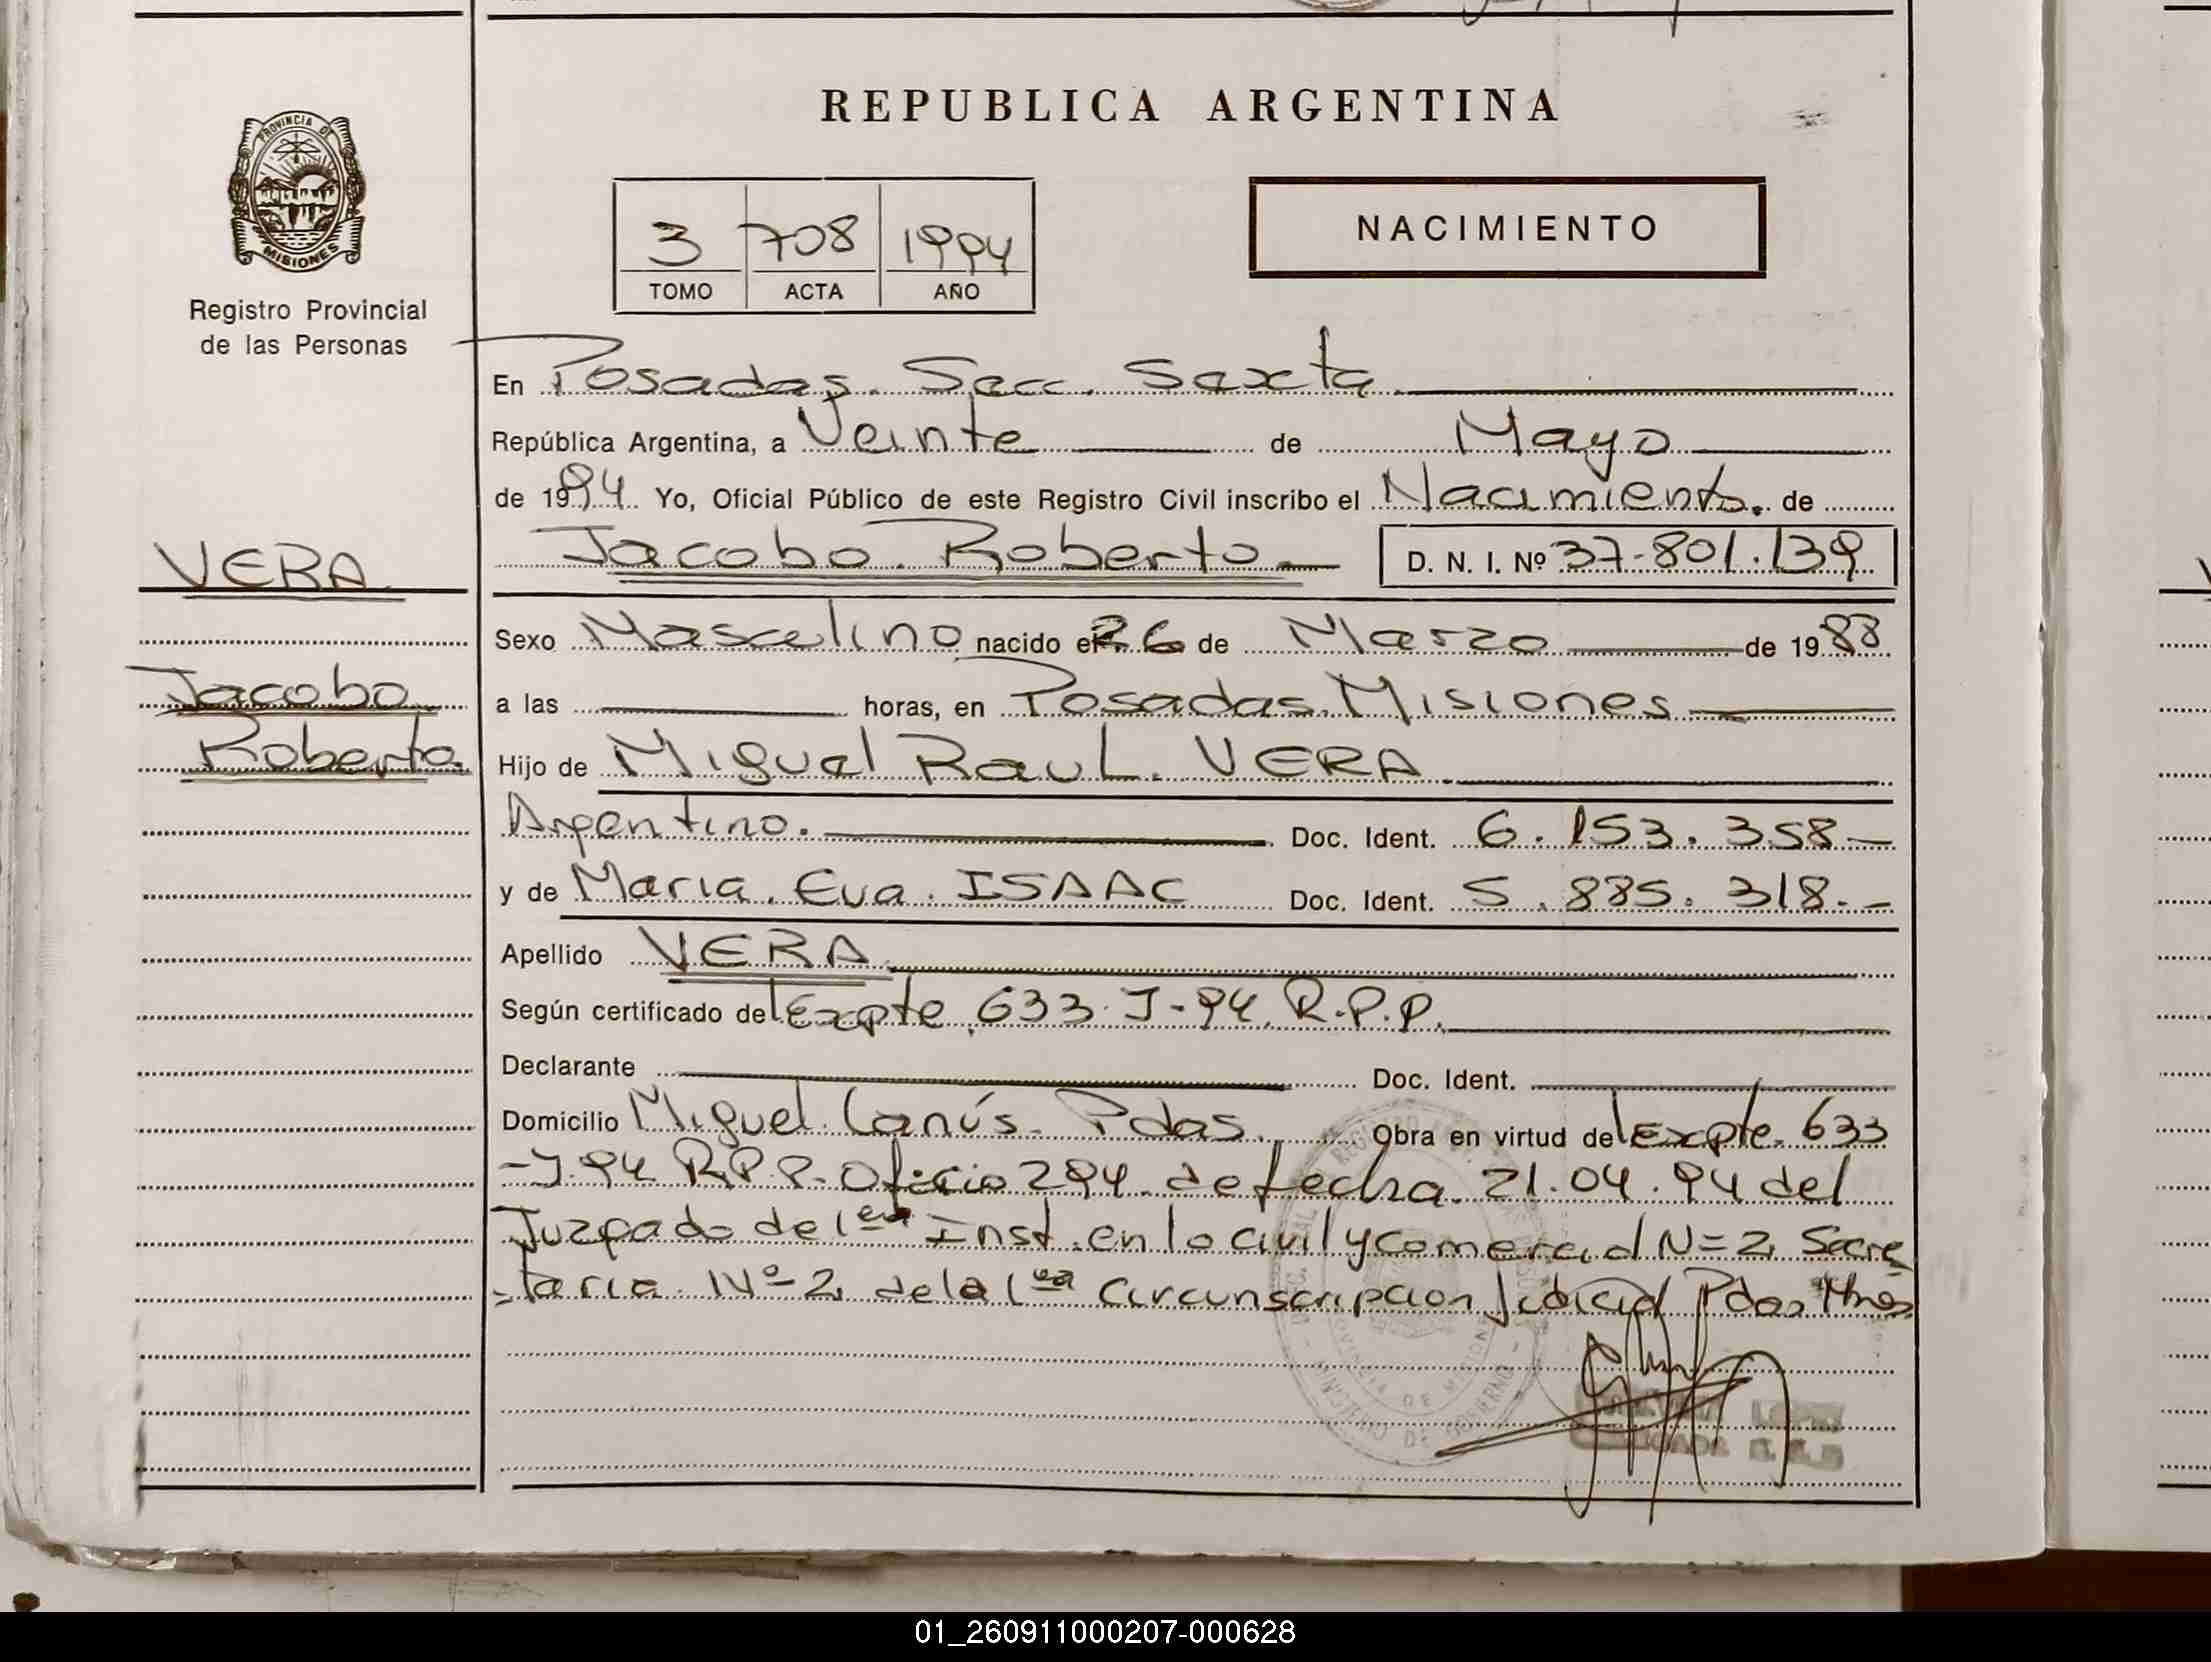 REPUBLICA ARGENTINA
PROVINCIA DE
MISIONES
Registro Provincial
de las Personas
3 708 1994
TOMO ACTA AÑO
NACIMIENTO
En Posadas. Secc. Sexta
República Argentina, a Veinte de Mayo
de 1994 Yo, Oficial Público de este Registro Civil inscribo el Nacimiento. de
VERA
Jacobo Roberto
Jacobo. Roberto D. N. I. Nº 37.801.139
Sexo Masculino nacido el 26 de Marzo de 1988
a las horas, en Posadas. Misiones
Hijo de Miguel Raul. VERA
Argentino. Doc. Ident. 6.153.358-
y de Maria. Eva. ISAAC Doc. Ident. 5.885.318.-
Apellido VERA
Según certificado del Expte. 633. J-94. R.P.P.
Declarante Doc. Ident.
Domicilio Miguel Lanús. Pdas. Obra en virtud del Expte. 633
-J.94 R.P.P. Oficio 294. de fecha. 21.04.94 del
Juzgado de 1era Inst. en lo civil y comercial N=2, Secre
=taria Nº 2, de la 1era Circunscripcion Judicial Pdas Mnes.
01_260911000207-000628